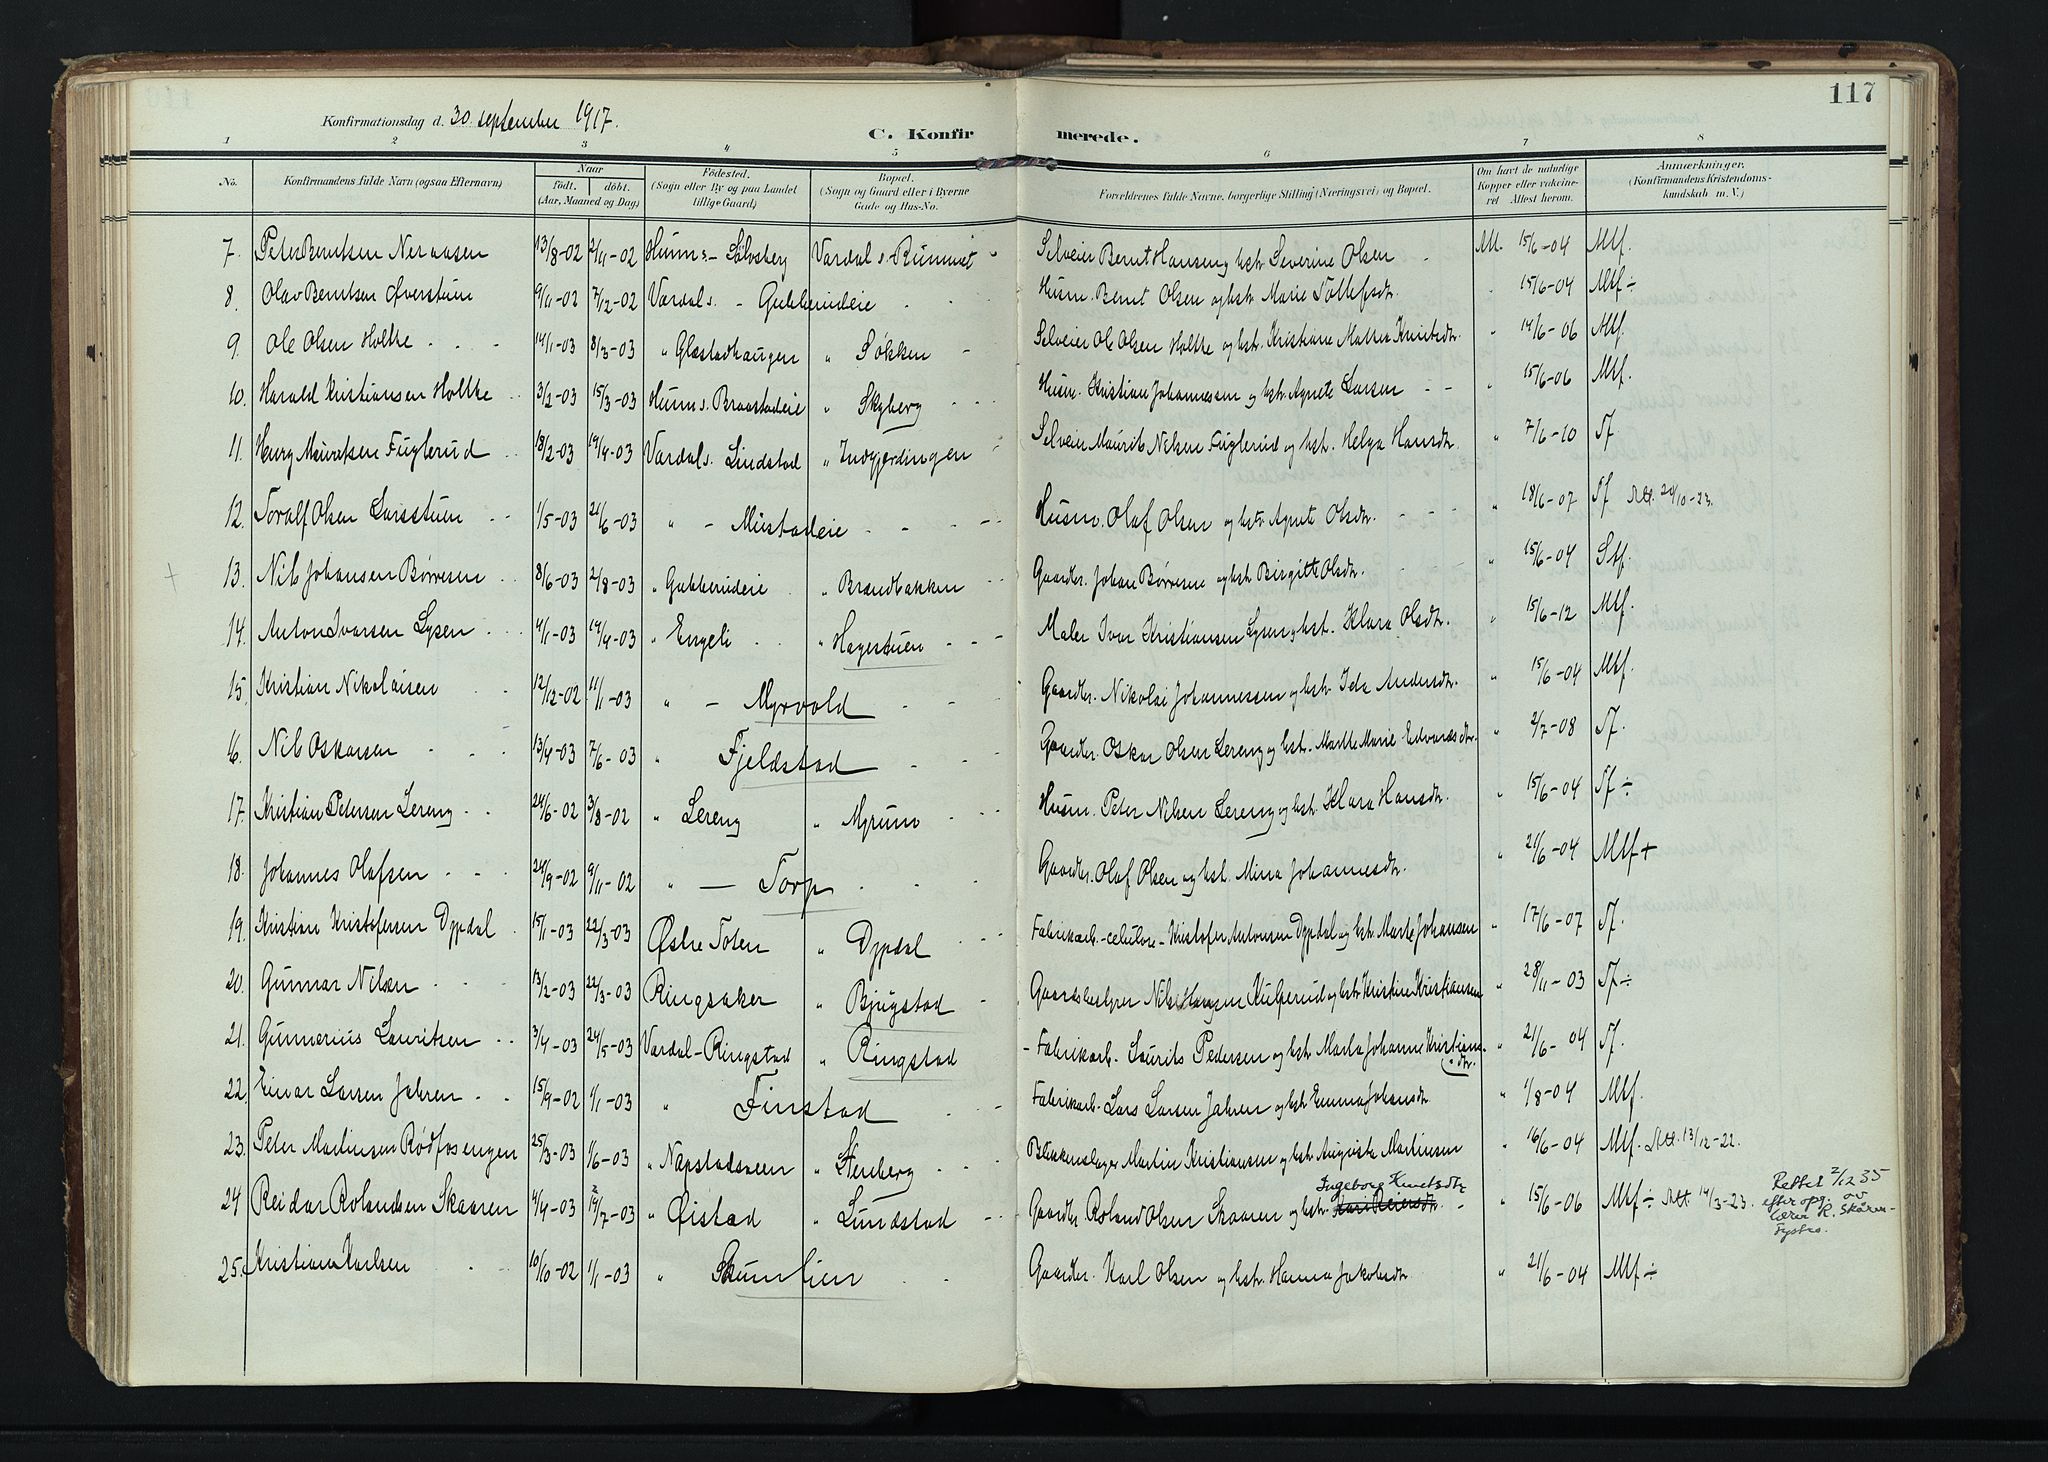 117
Konfirmationsdag d. 30 september 1917.
C. Konfirmerede.
1 2 3 4 5 6 7 8
No. Konfirmandens fulde Navn (ogsaa Efternavn) Naar født. døbt. (Aar, Maaned og Dag) Fødested. (Sogn eller By og paa Landet tillige Gaard) Bopæl. (Sogn og Gaard eller i Byerne Gade og Hus-No. Forældrenes fulde Navne, borgerlige Stilling (Næringsvei) og Bopæl. Om havt de naturlige Kopper eller vakcineret Attest herom. Anmærkninger. (Konfirmandens Kristendomskundskab m. V.)
7. Peter Berntsen Neraasen 13/8-02 2/11-02 Hunns.- Sølvsberg Vardal s. Selveier Bernt Hansen og hstr. Severine Olsen 15/6-04 Mtf.
8. Olav Berntsen Øverstuen 9/11-02 7/12-02 Vardal s. - Gukkerudeie Husm. Bernt Olsen og hstr. Marie Tollefsdtr. " 15/6-04 Mtf ÷
9. Ole Olsen Holthe 14/1-03 8/3-03 " Glæstadhaugen " Søkken Selveier Ole Olsen Holthe og hstr. Kristiane Mathea Knutsdtr. " 14/6-06 Mtf.
10. Harald Kristiansen Holthe 3/2-03 15/3-03 Hunns. Braastadeie " Skyberg Husm. Kristian Johannessen og hstr. Agnete Larsen " 15/6-06 Mtf.
11. Mauritsen Fuglerud 18/2-03 19/4-03 Vardal s. Lindstad " Indgjerdingen Selveier Maurits Nilsen Fuglerud og hstr. Helga Hansdtr. " 7/6-10 Tf.
12. Toralf Olsen Larsstuen 1/5-03 21/6-03 " - Mustadeie Husm. Olaf Olsen og hstr. Agnete Olsdtr. " 18/6-07 Tf Att. 24/10-23.
13. Nils Johansen Børresen 8/6-03 2/8-03 " Gukkerudeie " Brandbakken Gaardbr. Johan Børresen og hstr. Birgitte Olsdtr. " 15/6-04 Stf.
14. Anton Ivarsen Lysen 4/1-03 19/4-03 " Engeli " Hagestuen Maler Ivar Kristiansen Lysen og hst. Klara Olsdtr. " 15/6-12 Mtf.
15. Kristian Nikolaisen 12/12-02 11/1-03 " - Myrvold Gaardbr. Nikolai Johannessen og hstr. Ida Andersdtr. " 15/6-04 Mtf.
16. Nils Oskarsen 13/4-03 7/6-03 " Fjeldstad Gaardbr. Oskar Olsen Lereng og hst. Marthe Marie Edvardsdtr. " 2/7-08 Tf.
17. Kristian Petersen Lereng 24/6-02 3/8-02 " Lereng " Myrum Husm. Peter Nilsen Lereng og hst. Klara Hansdtr. " 15/6-04 Tf ÷
18. Johannes Olafsen 24/9-02 9/11-02 " — Torp Gaardbr. Olaf Olsen og hst. Mina Johannesdtr. " 21/6-04 Mtf +
19. Kristian Kristofersen Dypdal 15/1-03 22/3-03 Østre Toten " Dypdal Fabrikarb. -celulose- Kristofer Antonsen Dypdal og hstr. Marte Johansen " 17/6-07 Tf.
20. Gunnar Nilsen 13/2-03 22/3-03 Ringsaker " Bjugstad Gaardsbestyrer Nils Hansen Kulperud og hstr. Kristine Kristiansen " 28/11-03 Tf ÷
21. Gunnerius Lauritsen 3/4-03 24/5-03 Vardal-Ringstad " Ringstad Fabrikarb. Laurits Pedersen og hstr. Marta Johanne Kristiansdtr. " 21/6-04 Tf.
22. Einar Larsen Jahren 15/9-02 1/1-03 " Finstad Fabrikarb. Lars Larsen Jahren og hstr. Emma Johansdtr. " 1/8-04 Mtf.
23. Peter Martinsen Rødfosengen 25/3-03 1/6-03 " " Stenberg Blikkenslager Martin Kristiansen og hstr. Augusta Martinsen " 16/6-04 Mtf. Att. 13/12-22.
24 Reidar Rolandsen Skaaren 4/4-03 19/7-03 " Øistad " Lundstad Gaardbr. Roland Olsen Skaaren og hstr. Kari Reiersdtr. Ingeborg Knutsdtr. " 15/6-06 Mtf ÷ Att 14/3-23. Rettet 2/12 35 efter opg. av lærer R. Skåren-Fystro.
25. Kristian Karlsen 10/10-02 1/1-03 " Skumlien Gaardbr. Karl Olsen og hstr. Hanna Jakobsdtr. " 21/6-04 Mtf ÷